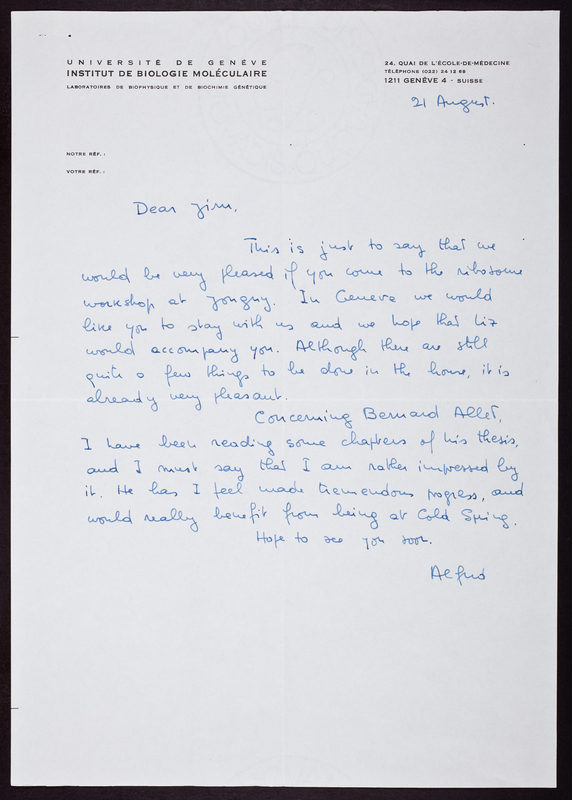 UNIVERSITÉ DE GENÈVE
INSTITUT DE BIOLOGIE MOLÉCULAIRE
LABORATOIRES DE BIOPHYSIQUE ET DE BIOCHIMIE GÉNÉTIQUE
24, QUAI DE L'ÉCOLE-DE-MÉDECINE
TÉLÉPHONE (022) 24 12 68
1211 GENÈVE 4 - SUISSE
21 August.
NOTRE RÉF. :
VOTRE RÉF. :
Dear Jim,
This is just to say that we
would be very pleased if you come to the ribosome
workshop at Jongny. In Geneva we would
like you to stay with us and we hope that Liz
would accompany you. Although there are still
quite a few things to be done in the house, it is
already very pleasant.
Concerning Bernard Allet,
I have been reading some chapters of his thesis,
and I must say that I am rather impressed by
it. He has I feel made tremendous progress, and
would really benefit from being at Cold Spring.
Hope to see you soon.
Alfred